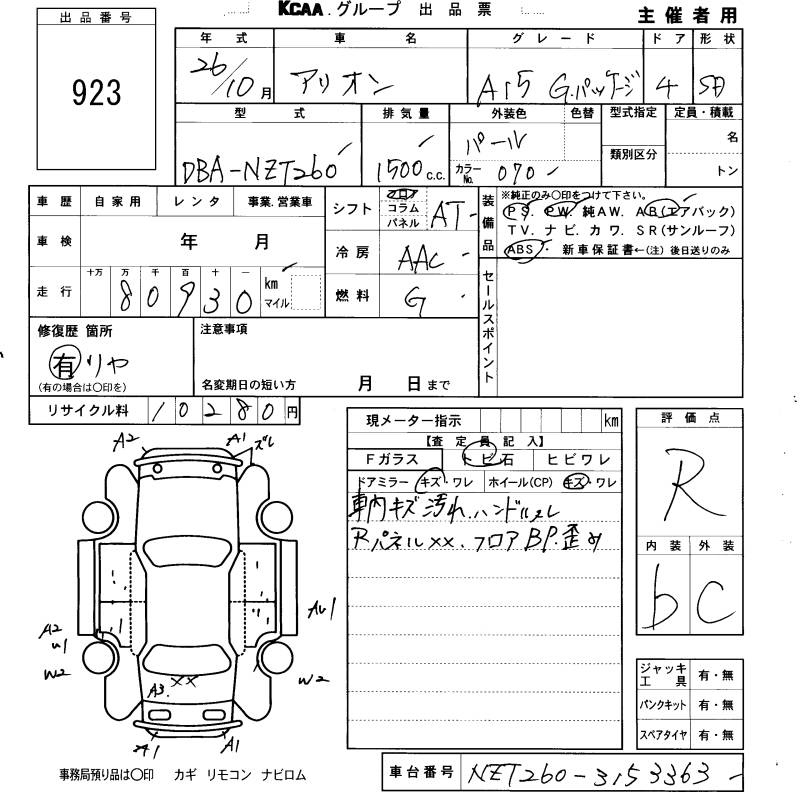 KCAA.グループ 出品票
主催者用
出品番号
923
年式 車名 グレード ドア 形状
26/10月 アリオン A15 G.パッケージ 4 SD
型式 排気量 外装色 色替 型式指定 定員・積載
類別区分
名
トン
DBA-NZT260 1500c.c. パール
カラーNo. 070
車歴 自家用 レンタ 事業.営業車
車検 年 月
十万 万 千 百 十 一
走行 80930 km
マイル
シフト フロア コラム パネル AT
冷房 AAC
燃料 G
装備品
※純正のみ○印をつけて下さい。
PS. PW. 純AW. AB(エアバック)
TV. ナビ. カワ. SR(サンルーフ)
ABS・ 新車保証書←(注)後日送りのみ
セールスポイント
修復歴 箇所
有 リヤ
(有の場合は○印を)
注意事項
名変期日の短い方 月 日まで
リサイクル料 10280円
現メーター指示 km
【査定員記入】
Fガラス トビ石 ヒビワレ
ドアミラー キズ・ワレ ホイール(CP) キズ・ワレ
車内キズ汚れ.ハンドルスレ
Rパネルxx.フロアBP.歪み
評価点
R
内装 外装
b C
A2 A1 ズレ
A2
U1
W2
AU1
W2
A3. xx
A1 A1
ジャッキ工具 有・無
パンクキット 有・無
スペアタイヤ 有・無
事務局預り品は○印 カギ リモコン ナビロム
車台番号 NZT260-3153363